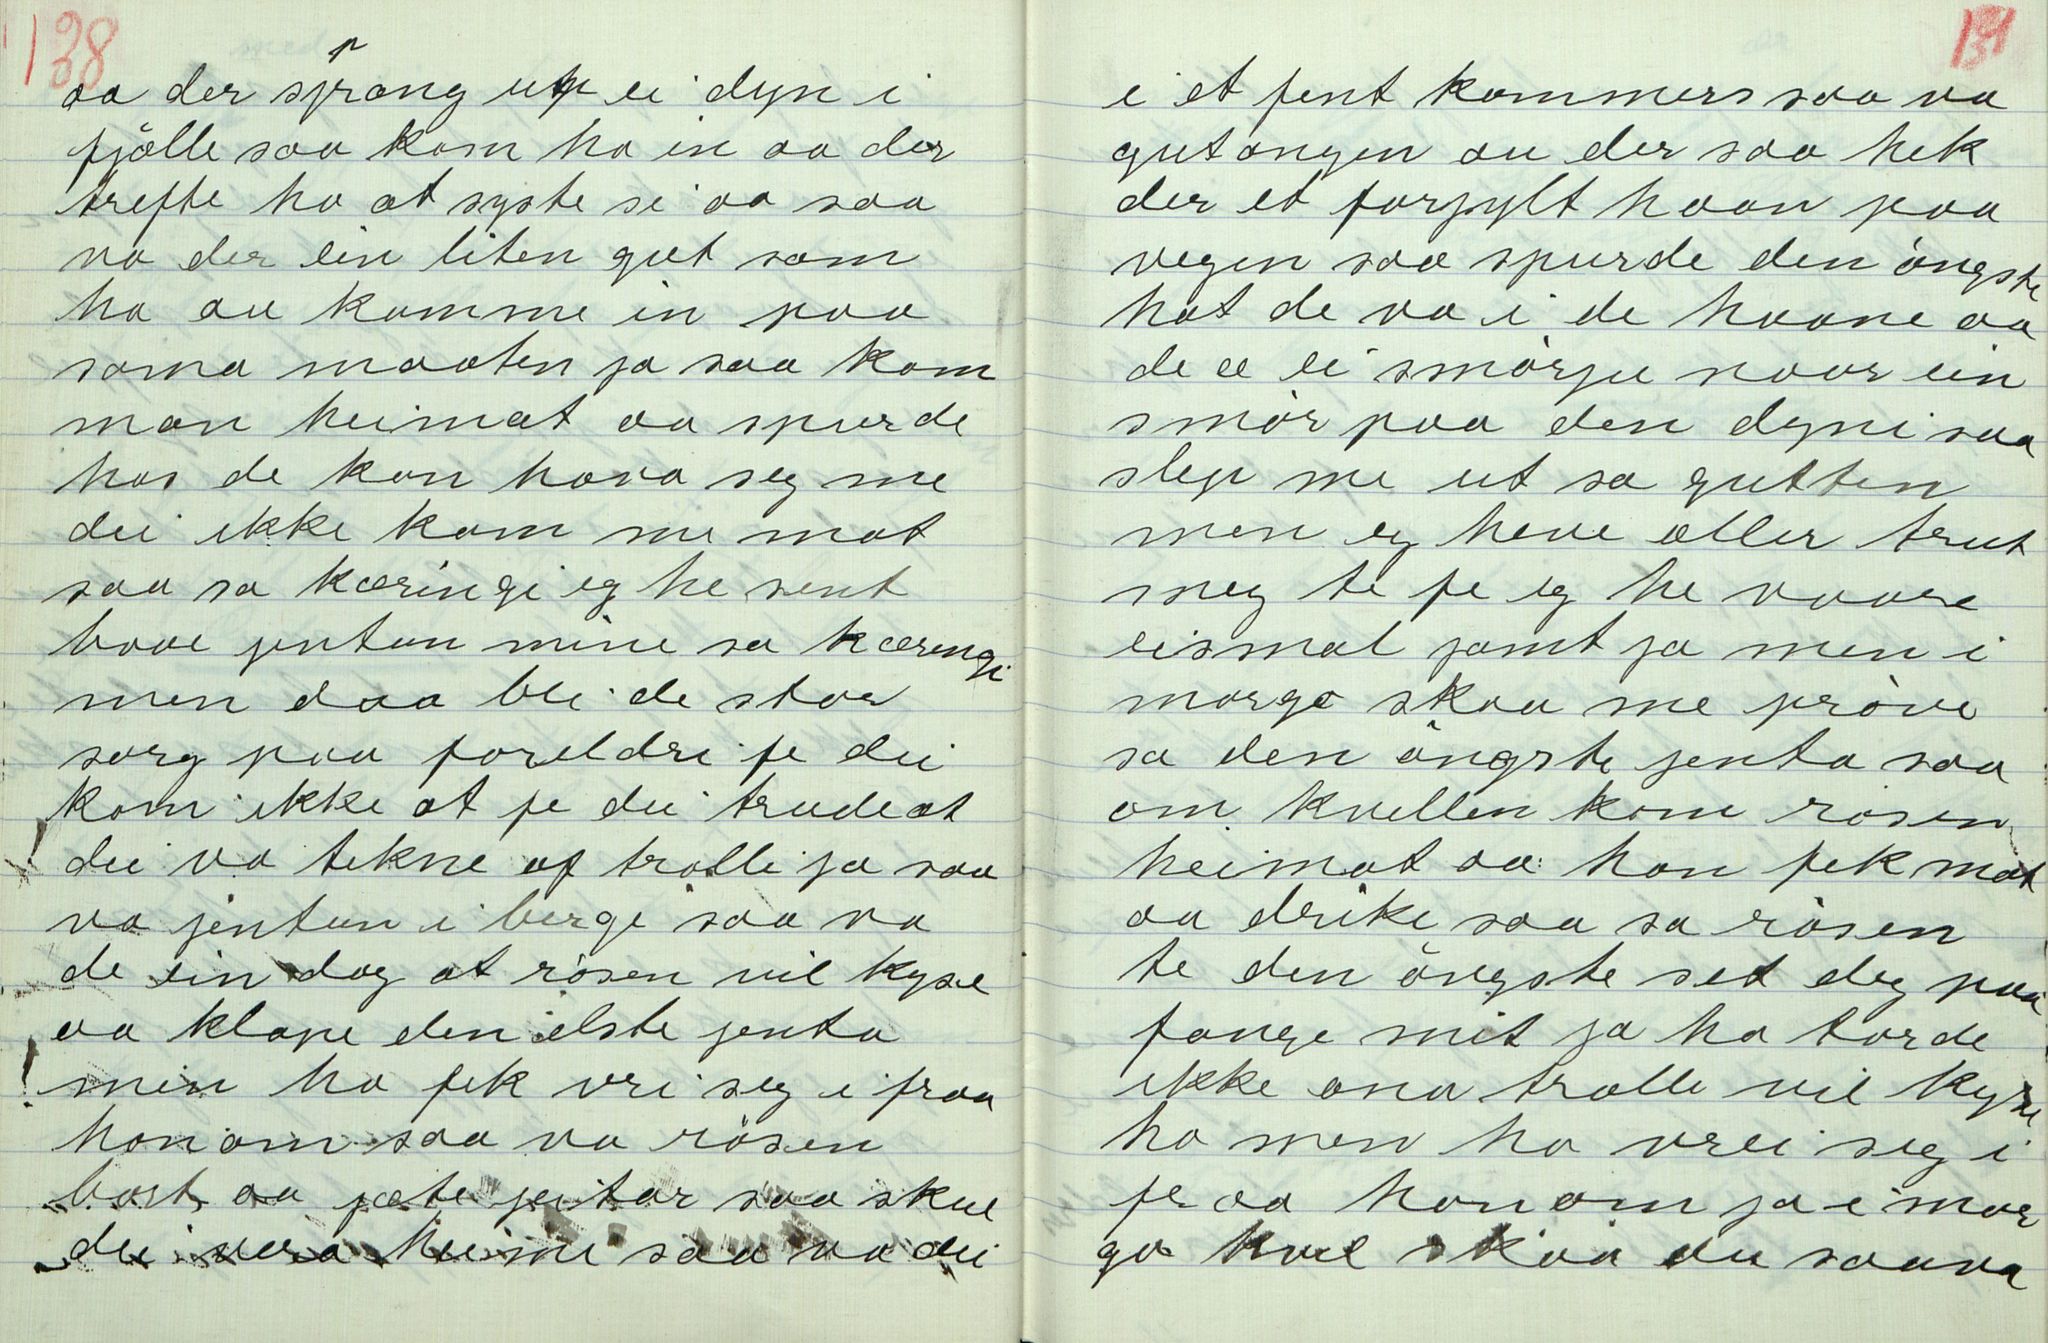 138
aa der sprang up ei dyn i
fjölle saa kom ho in aa der
trefte ho at syste si aa saa
va der ein liten gut som
ha au komme in paa
sama maaten ja saa kom
man heimat aa spurde
has de kan hava seg me
dei ikke kom me mat
saa sa kæringi eg he sent
bove jentun mine sa kæringi
men daa blei de stor
sorg paa foreldre fe dei
kom ikke at fe dei trude at
dei va tekne af trolle ja saa
va jentun i berge saa va
de ein dag at risen vil kyse
aa klape den elste jenta
men ho fek vri seg i fraa
honom saa va risen
bort aa jæte jeitar saa skul
dei vera heime saa va dei
131
i et fent kammers saa va
gutongen au der saa hek
der et forfylt haan paa
vegen saa spurde den öngste
hot de va i de haane aa
de æ ei smörju naar ein
smör paa den dyni saa
slep me ut sa gutten
men eg heve aller trut
meg te fe eg he vaare
eismal jamt ja men i
morgo skaa me pröve
sa den öngste jenta saa
om kvellen kom risen
heimat aa han fek mat
aa drike saa sa risen
te den öngste set deg paa
fange mit ja ho torde
ikke ana trolle vil kyse
ho men ho vrei seg i
fraa honom ja i mor
go kvel skaa du saava